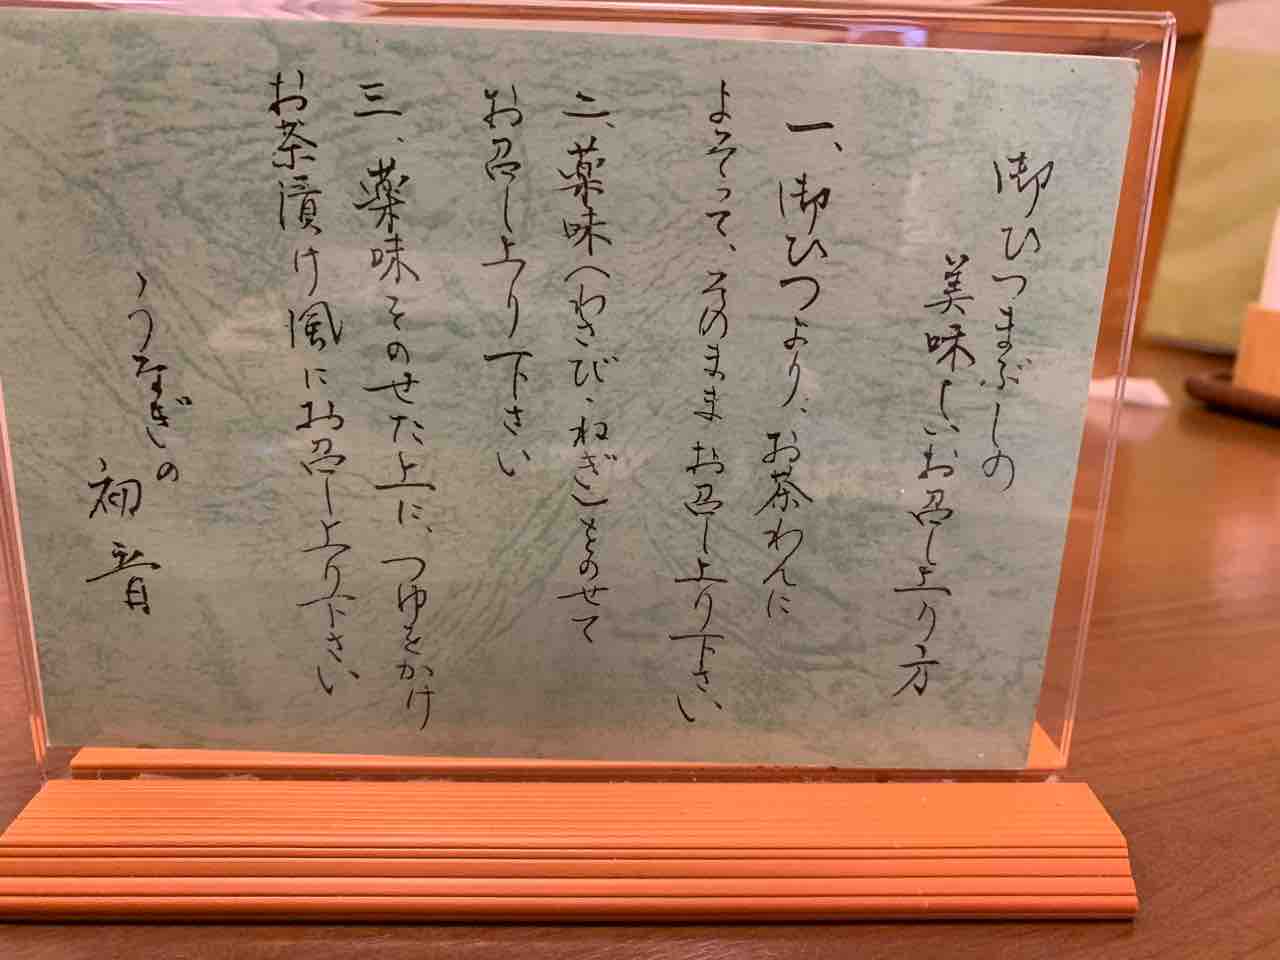 御ひつまぶしの
美味しいお召し上り方
一、御ひつより、お茶わんに
よそって、そのままお召し上り下さい
二、薬味(わさび、ねぎ)をのせて
お召し上り下さい
三、薬味をのせた上に、つゆをかけ
お茶漬け風にお召し上り下さい
うなぎの
初音